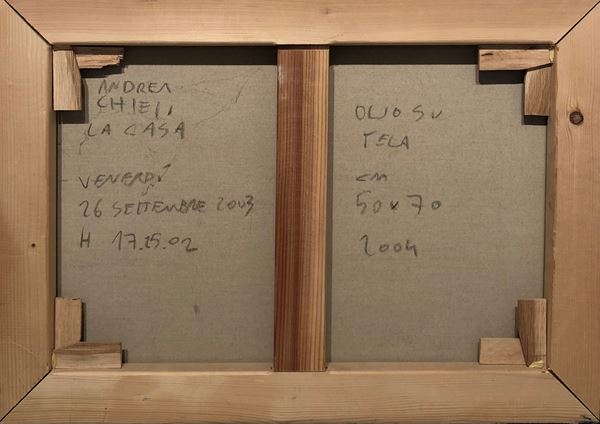 ANDREA
CHIESI
LA CASA
VENERDÍ
26 SETTEMBRE 2003
H 17.25.02
OLIO SU
TELA
CM
50x70
2004